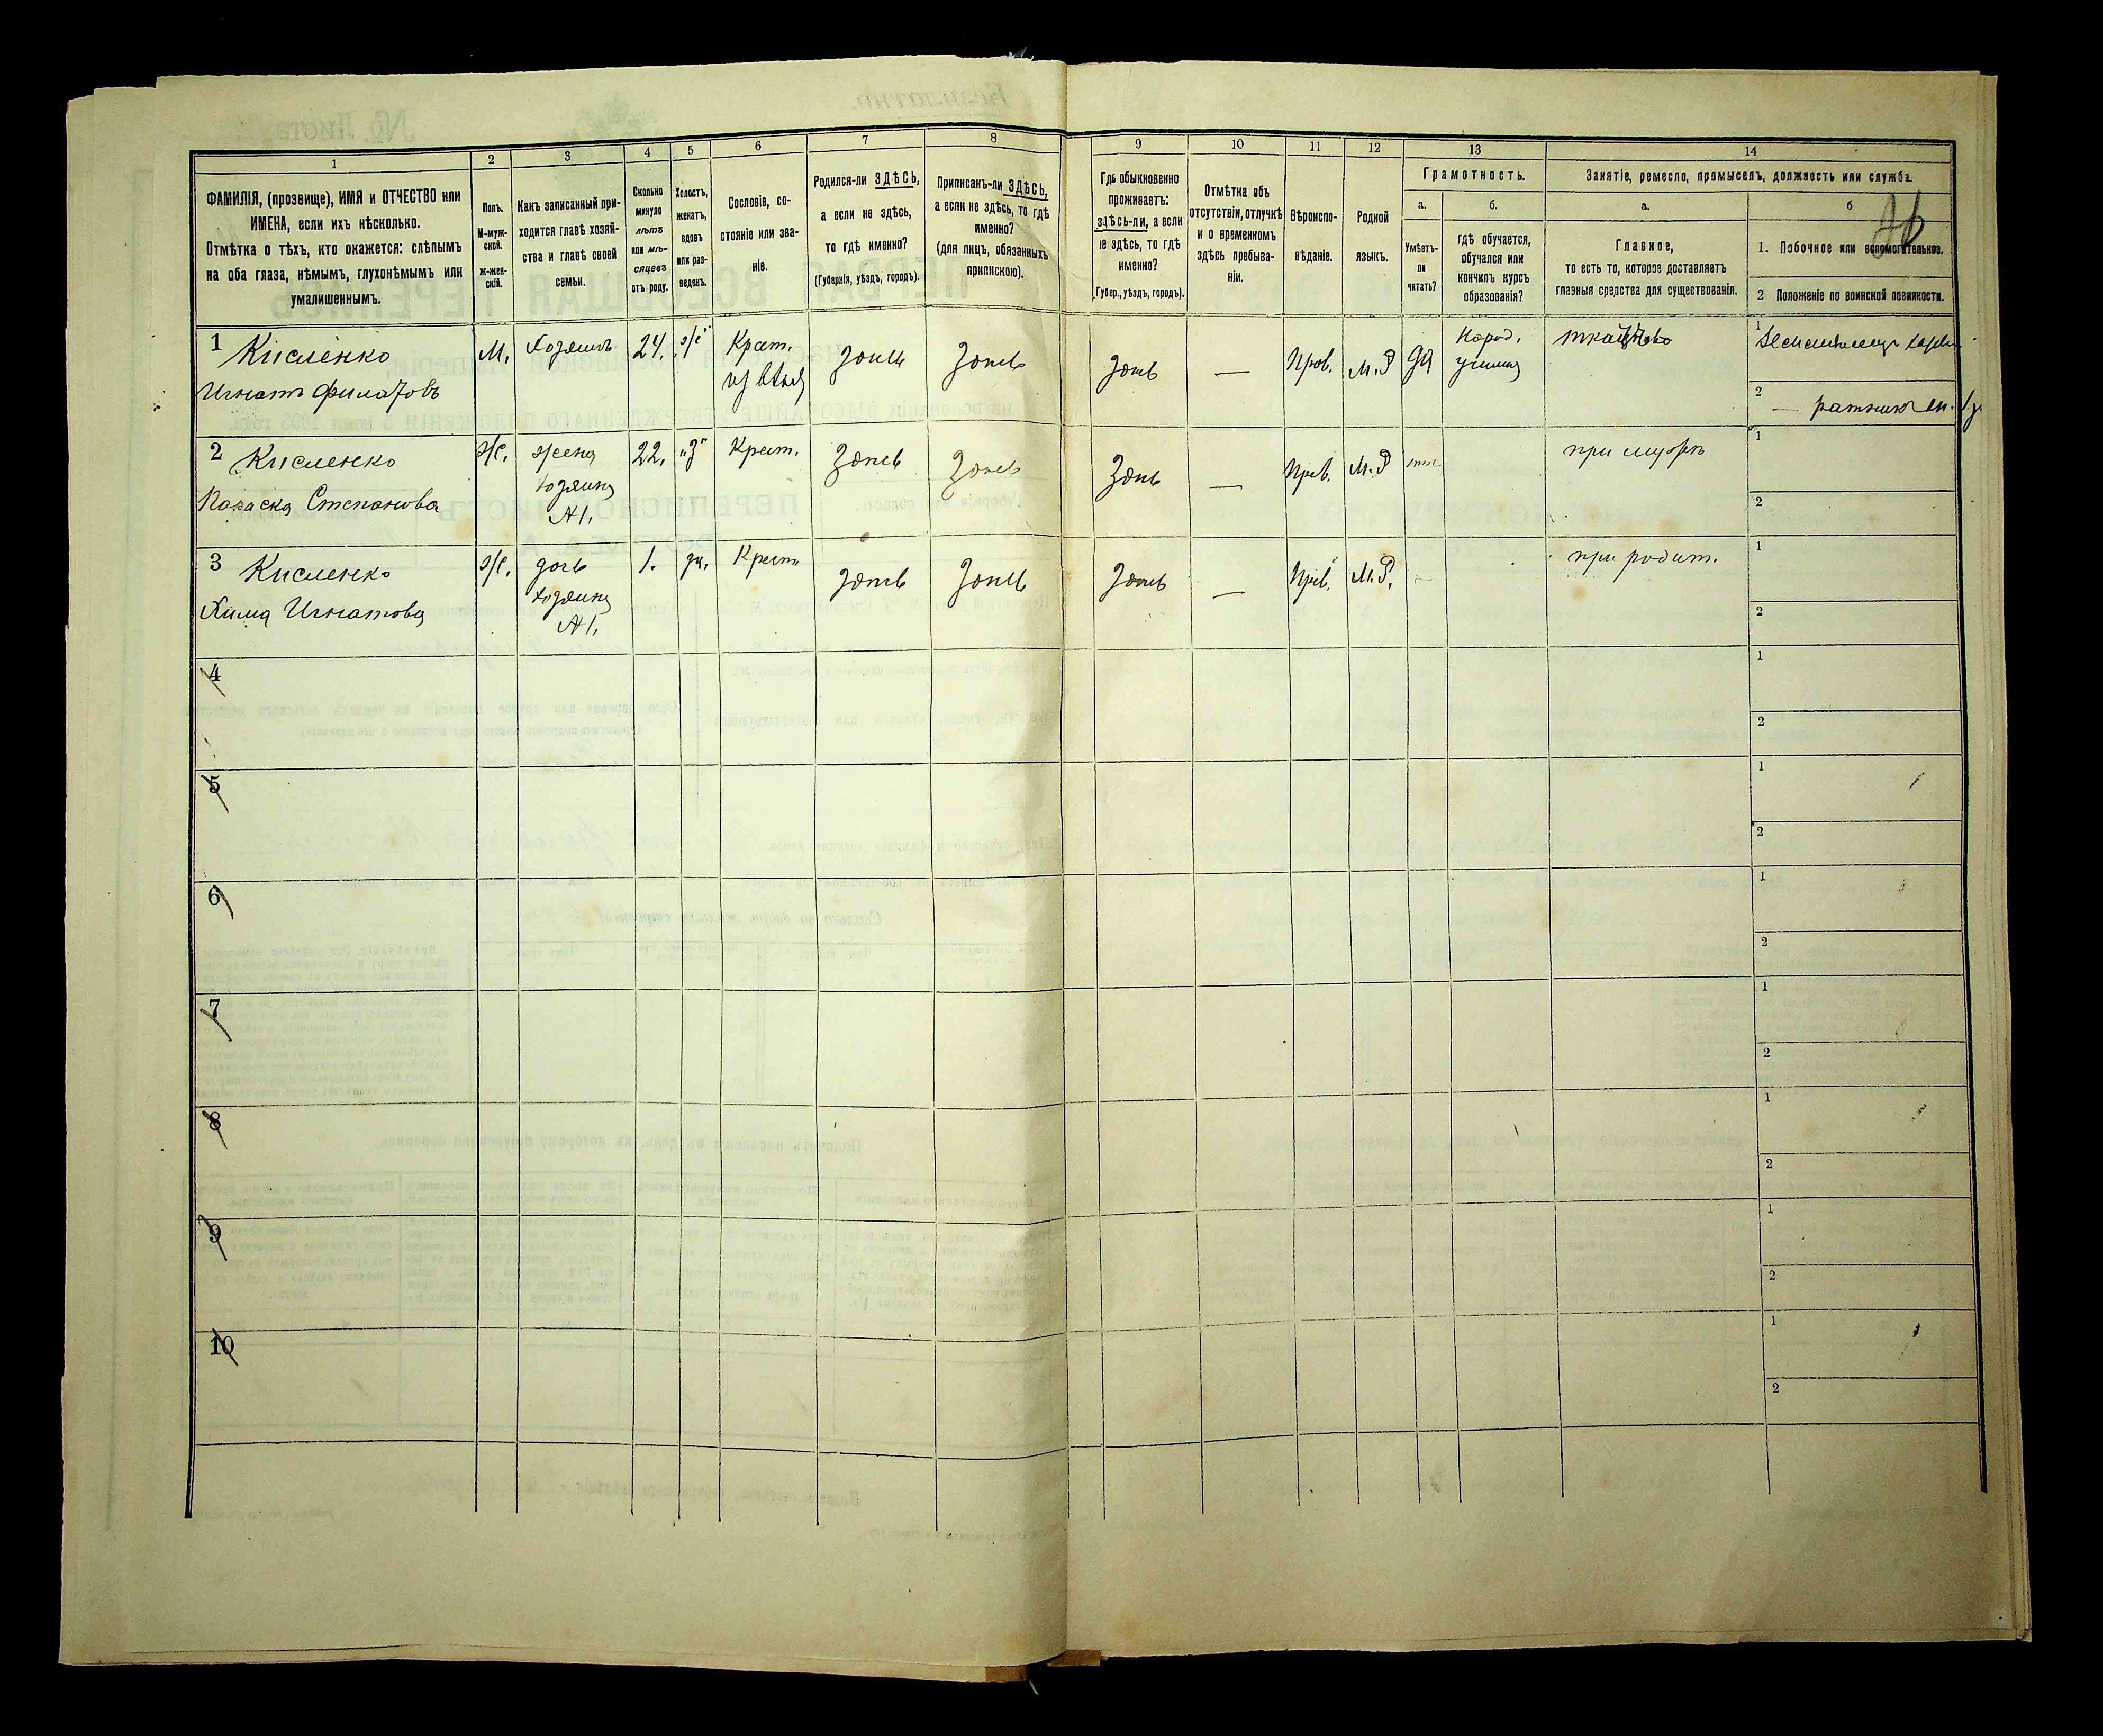 1
2
3
4
5
6
7
8
9
10
11
12
13
14
ФАМИЛІЯ, (прозвище), ИМЯ и ОТЧЕСТВО или
ИМЕНА, если ихъ нѣсколько.
Отмѣтка о тѣхъ, кто окажется: слѣпымъ
на оба глаза, нѣмымъ, глухонѣмымъ или
умалишеннымъ.
Полъ.
М-муж-
ской.
ж-жен-
скій.
Какъ записанный при-
ходится главѣ хозяй-
ства и главѣ своей
семьи.
Сколько
минуло
лѣтъ
или мѣ-
сяцевъ
отъ роду.
Холостъ,
женатъ,
вдовъ
или раз-
веденъ.
Сословіе, со-
стояніе или зва-
ніе.
Родился-ли ЗДѢСЬ,
а если не здѣсь,
то гдѣ именно?
(Губернія, уѣздъ, городъ).
Приписанъ-ли ЗДѢСЬ,
а если не здѣсь, то гдѣ
именно?
(для лицъ, обязанныхъ
припискою).
Гдѣ обыкновенно
проживаетъ:
здѣсь-ли, а если
не здѣсь, то гдѣ
именно?
(Губер., уѣздъ, городъ).
Отмѣтка объ
отсутствіи, отлучкѣ
и о временномъ
здѣсь пребыва-
ніи.
Вѣроиспо-
вѣданіе.
Родной
языкъ.
Грамотность.
а.
Умѣетъ-
ли
читать?
б.
гдѣ обучается,
обучался или
кончилъ курсъ
образованія?
Занятіе, ремесло, промыселъ, должность или служба.
а.
Главное,
то есть то, которое доставляетъ
главныя средства для существованія.
б
1. Побочное или вспомогательное.
2 Положеніе по воинской повинности.
1 Кисленко
Игнатъ Филатовъ
М.
Хозяинъ
24.
Крест.
здѣсь
здѣсь
здѣсь
—
Прав.
М.Р
да
Народ.
1
2 — ратникъ
2 Кисленко
Параска Степанова
ж.
жена
хозяина
№1.
22.
"з"
Крест.
здѣсь
здѣсь
здѣсь
—
Прав.
М.Р
нѣт
при мужѣ
1
2
3 Кисленко
Хима Игнатова
ж.
дочь
хозяина
№1.
1.
дѣ.
Крест
здѣсь
здѣсь
здѣсь
—
Прав.
М.Р.
—
при родит.
1
2
4
1
2
5
1
2
6
1
2
7
1
2
8
1
2
9
1
2
10
1
2